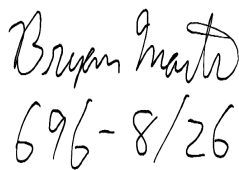 Bryan Martz
696-8/26